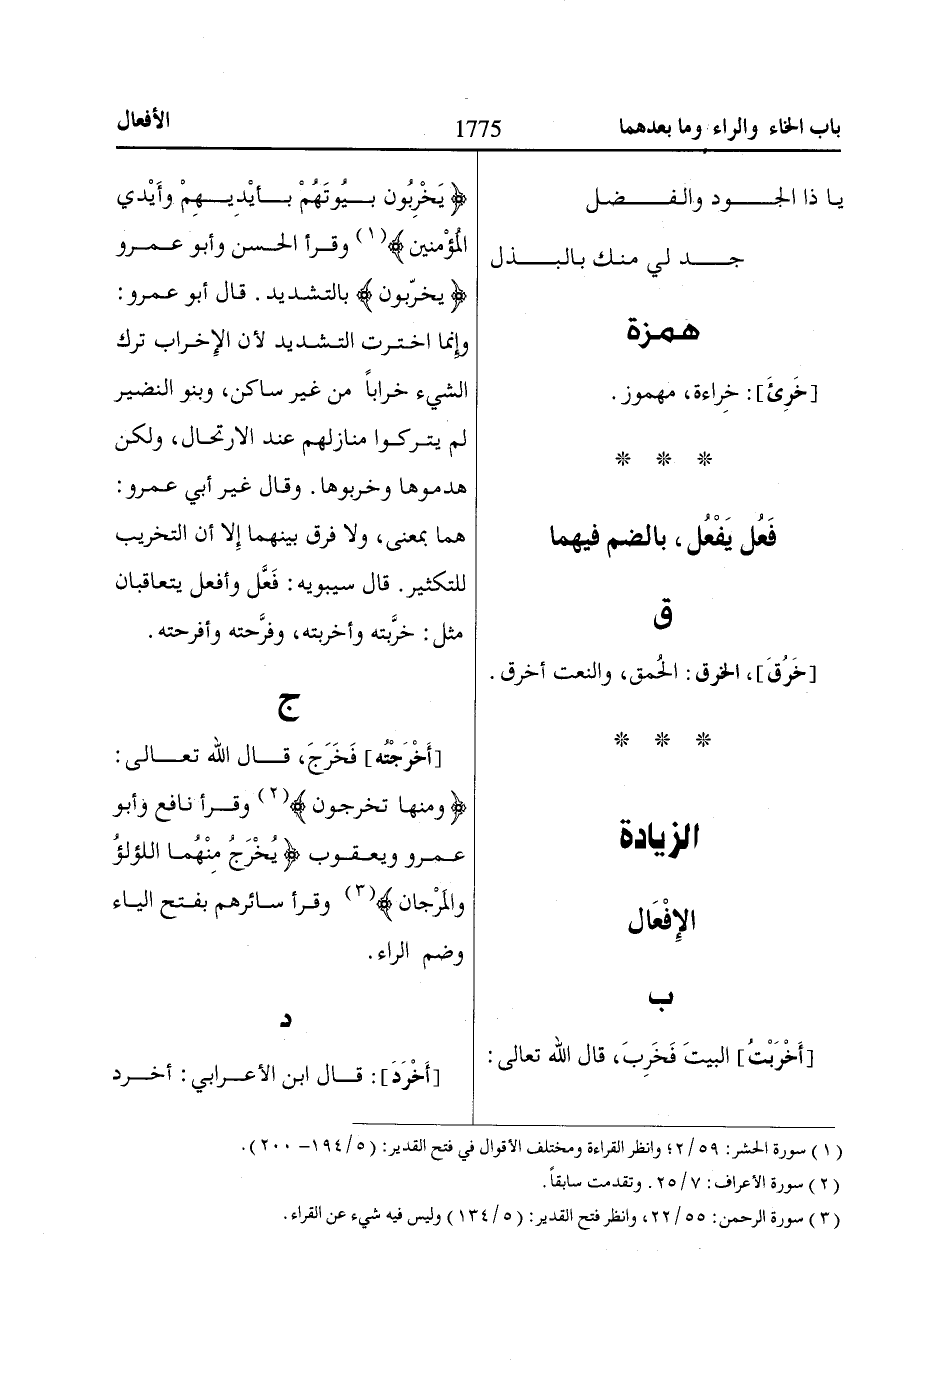 باب الخاء والراء وما بعدهما 1775 الأفعال
يا ذا الجـــــود والفـــــضل
جـــــد لي منك بالبـــــذل
همزة
[خَرِئَ]: خِراءة، مهموز.
* * *
فَعُل يَفْعُل، بالضم فيهما
ق
[خَرُقَ]، الخرق: الحُمق، والنعت أخرق.
* * *
الزيادة
الإِفْعَال
ب
[أَخْرَبْتُ] البيتَ فَخَرِبَ، قال الله تعالى:
﴿يَخْرِبُون بـيُوتَهُمْ بـأيْدِيـهِمْ وأَيْدي
المُؤْمنين﴾(١) وقـرأ الحـسن وأبو عـمـرو
﴿يخرّبون﴾ بالتشديد. قال أبو عمرو:
وإنما اختـرت التـشـديد لأن الإخراب ترك
الشيء خراباً من غير ساكن، وبنو النضير
لم يتركـوا منازلهم عند الارتحال، ولكن
هدموها وخربوها. وقال غير أبي عمرو:
هما بمعنى، ولا فرق بينهما إلا أن التخريب
للتكثير. قال سيبويه: فَعَّل وأفعل يتعاقبان
مثل: خرَّبته وأخربته، وفرَّحته وأفرحته.
ج
[أَخْرَجْتُه] فَخَرَجَ، قـــال الله تعــالى:
﴿ومنها تخرجون﴾(٢) وقـرأ نافع وأبو
عـمـرو ويعـقـوب ﴿يُخْرَجُ مِنْهُمـا اللؤلؤُ
والمَرْجان﴾(٣) وقـرأ سـائرهم بفـتح اليـاء
وضم الراء.
د
[أَخْرَدَ]: قــال ابن الأعـرابي: أخـرد
(١) سورة الحشر: ٢/٥٩؛ وانظر القراءة ومختلف الأقوال في فتح القدير: (١٩٤/٥- ٢٠٠).
(٢) سورة الأعراف: ٢٥/٧. وتقدمت سابقاً.
(٣) سورة الرحمن: ٢٢/٥٥، وانظر فتح القدير: (١٣٤/٥) وليس فيه شيء عن القراء.